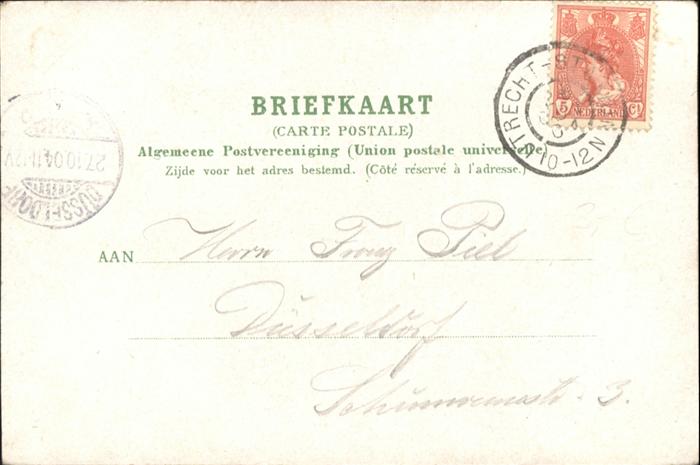 BRIEFKAART
(CARTE POSTALE)
Algemeene Postvereeniging (Union postale universelle)
Zijde voor het adres bestemd. (Côté réservé à l'adresse.)
AAN Herrn Franz Piel
Düsseldorf
3.
5 CT
NEDERLAND
UTRECHT-ST
10-12 N
DÜSSELDORF
27.10.04.11-12V